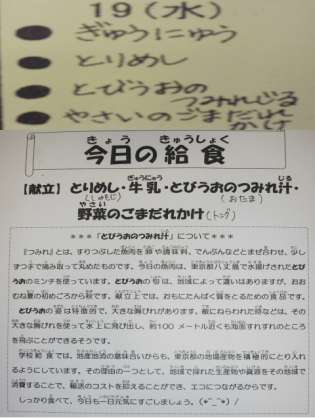 19(水)
ぎゅうにゅう
とりめし
とびうおの
つみれじる
やさいのごまだれ
かけ
きょう きゅうしょく
今日の給食
ぎゅうにゅう じる
【献立】とりめし・牛乳・とびうおのつみれ汁・
(しゃもじ) (おたま)
やさい
野菜のごまだれかけ(トング)
***「とびうおのつみれ汁」について***
『つみれ』とは、すりつぶした魚肉を卵や調味料、でんぷんなどとまぜ合わせ、少し
ずつ手で摘み取って丸めたものです。今日の魚肉は、東京都八丈島で水揚げされたとび
うおのミンチを使っています。とびうおの旬は、地域によって違いはありますが、おお
むね夏の初めころから秋です。献立上では、おもにたんぱく質をとるための食品です。
とびうおの姿は特徴的で、大きな胸びれがあります。敵にねらわれた時などは、その
大きな胸びれを使って水上に飛び出し、約100メートル近くも海面すれすれのところ
を飛ぶことができるそうです。
学校給食では、地産地消の意味合いからも、東京都の地場産物を積極的にとり入れ
るようにしています。その理由の一つとして、地域で採れた生産物や資源をその地域で
消費することで、輸送のコストを抑えることができ、エコにつながるからです。
しっかり食べて、今日も一日元気にすごしましょう。(+^_^+)/